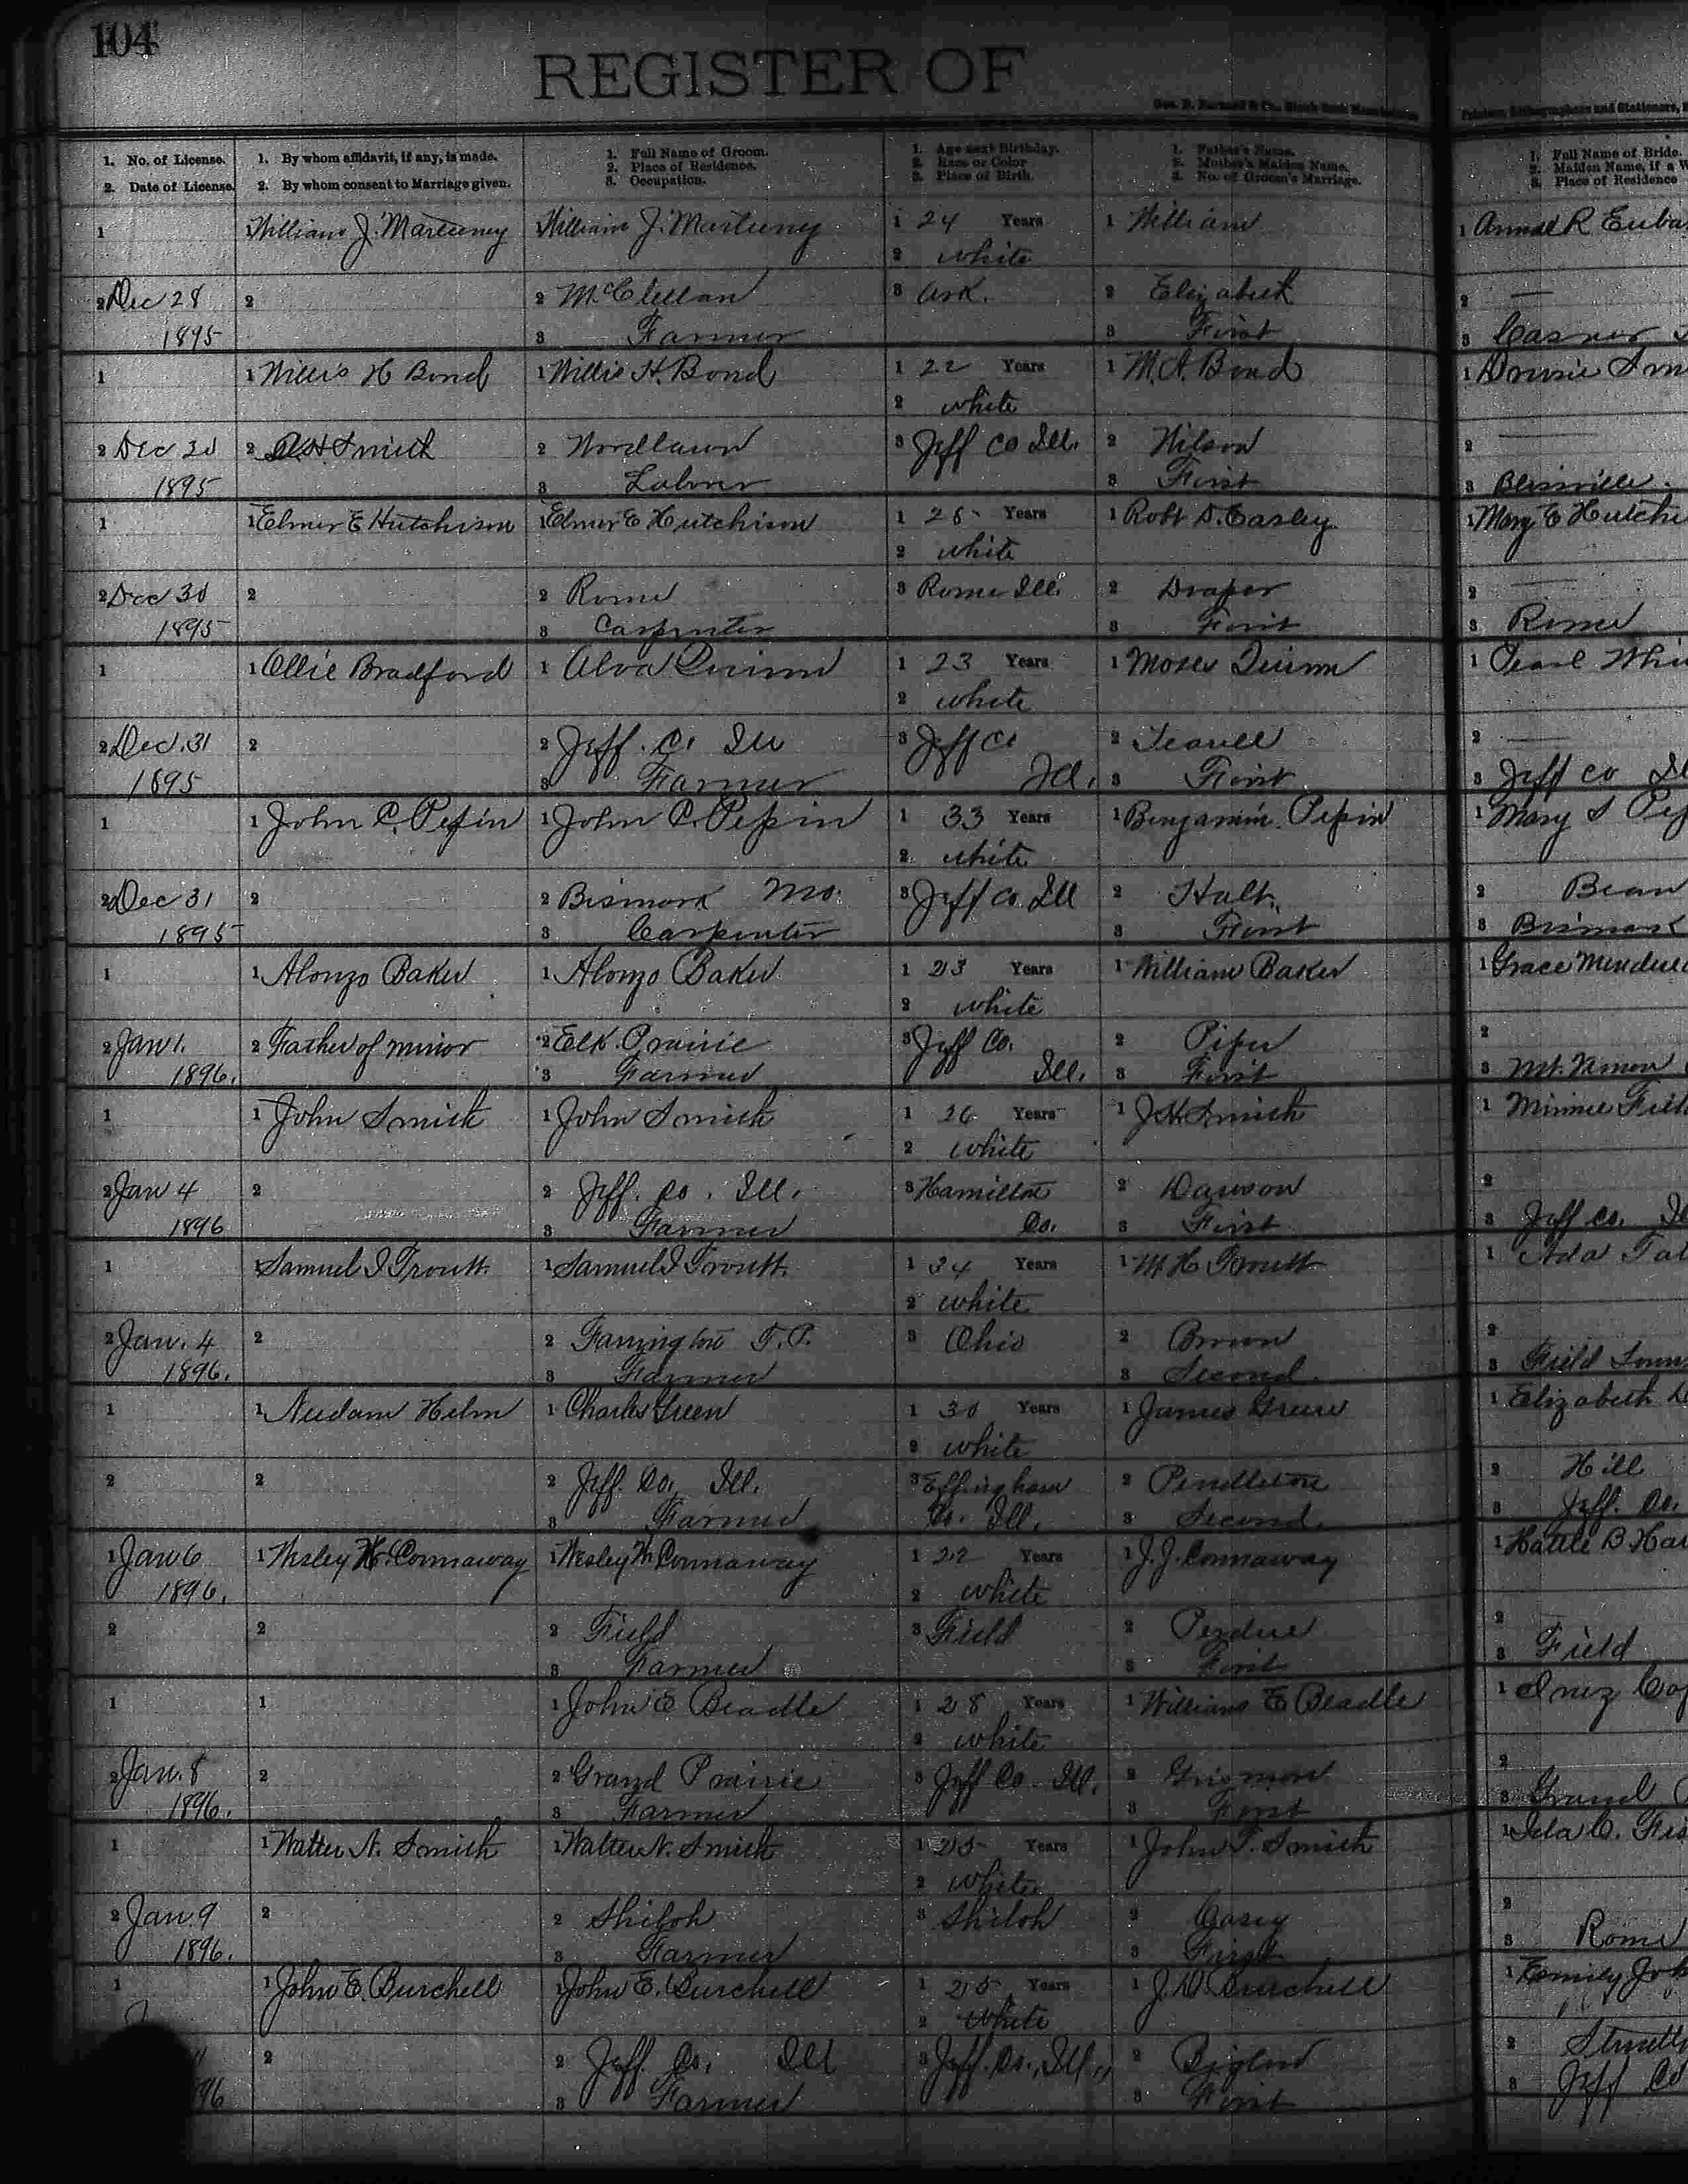 104
REGISTER OF
1. No. of License.
2. Date of License.
1. By whom affidavit, if any, is made.
2. By whom consent to Marriage given.
1. Full Name of Groom.
2. Place of Residence.
3. Occupation.
1. Age next Birthday.
2. Race or Color
3. Place of Birth.
1. Father's Name.
2. Mother's Maiden Name.
3. No. of Groom's Marriage.
1. Full Name of Bride.
2. Maiden Name, if a W
3. Place of Residence
1 1 William J. 1 William J. 1 24 Years 1 William 1 R Euba
2 white
2 Dec 28 2 2 McClellan 3 Ark. 2 Elizabeth 2 —
1895 3 Farmer 3 First 3 Casner
1 1 Willis H Bond 1 Willis H. Bond 1 22 Years 1 M.A. Bond 1
2 white
2 Dec 30 2 Smith 2 Woodlawn 3 Jeff Co Ill. 2 Wilson 2 —
1895 3 Laborer 3 First 3
1 1 Elmer E Hutchison 1 Elmer E Hutchison 1 Years 1 Robt D. 1 Mary E Hutchi
2 white
2 Dec 30 2 2 Rome 3 Rome Ill. 2 Draper 2 —
1895 3 Carpenter 3 First 3 Rome
1 1 Ollie Bradford 1 Alva Quinn 1 23 Years 1 Moses Quinn 1 Pearl Whi
2 white
2 Dec. 31 2 2 Jeff. Co Ill 3 Jeff Co 2 2 —
1895 3 Farmer Ill. 3 First 3 Jeff Co Il
1 1 John C. Pepin 1 John C. Pepin 1 33 Years 1 Benjamin Pepin 1 Mary S Pep
2 white
2 Dec 31 2 2 Bismark Mo. 3 Jeff Co. Ill 2 Halt. 2 Bean
1895 3 Carpenter 3 First 3 Bismark
1 1 Alonzo Baker 1 Alonzo Baker 1 23 Years 1 William Baker 1 Grace
2 white
2 Jan 1. 2 Father of minor 2 Elk Prairie 3 Jeff Co. 2 Piper 2
1896. 3 Farmer Ill. 3 First 3 Mt. Vernon
1 1 John Smith 1 John Smith 1 26 Years 1 J.H. Smith 1 Minnie
2 white
2 Jan 4 2 2 Jeff. Co. Ill. 3 Hamilton 2 Dawson 2
1896 3 Farmer Co. 3 First 3 Jeff Co. Il
1 1 Samuel J Troutt. 1 Samuel J Troutt. 1 34 Years 1 M H Troutt 1 Ada
2 white
2 Jan. 4 2 2 Farrington T.P. 3 Ohio 2 Brown 2
1896. 3 Farmer 3 Second. 3 Field Town
1 1 Helm 1 Charles Green 1 30 Years 1 James Green 1 Elizabeth
2 white
2 2 2 Jeff. Co. Ill. 3 Effingham 2 Pendleton 2 Hill
3 Farmer Co. Ill. 3 Second. 3 Jeff. Co.
1 Jan 6 1 Wesley W. Connaway 1 Wesley W Connaway 1 22 Years 1 J.J. Connaway 1 Hattie B Har
1896. 2 white
2 2 2 Field 3 Field 2 Perdue 2
3 Farmer 3 First 3 Field
1 1 1 John E Beadle 1 28 Years 1 William E Beadle 1 Inez
2 white
2 Jan. 8 2 2 Grand Prairie 3 Jeff Co. Ill. 2 2
1896. 3 Farmer 3 First 3 Grand
1 1 Walter N. Smith 1 Walter N. Smith 1 25 Years 1 John T. Smith 1 Ida C.
2 White
2 Jan. 9 2 2 Shiloh 3 Shiloh 2 Casey 2
1896. 3 Farmer 3 First 3 Rome
1 1 John E. Burchell 1 John E. Burchell 1 25 Years 1 J.D. Burchell 1 Emily
2 White
2 2 Jeff. Co. Ill 3 Jeff. Co. Ill. 2 2
96 3 Farmer 3 First 3 Jeff Co